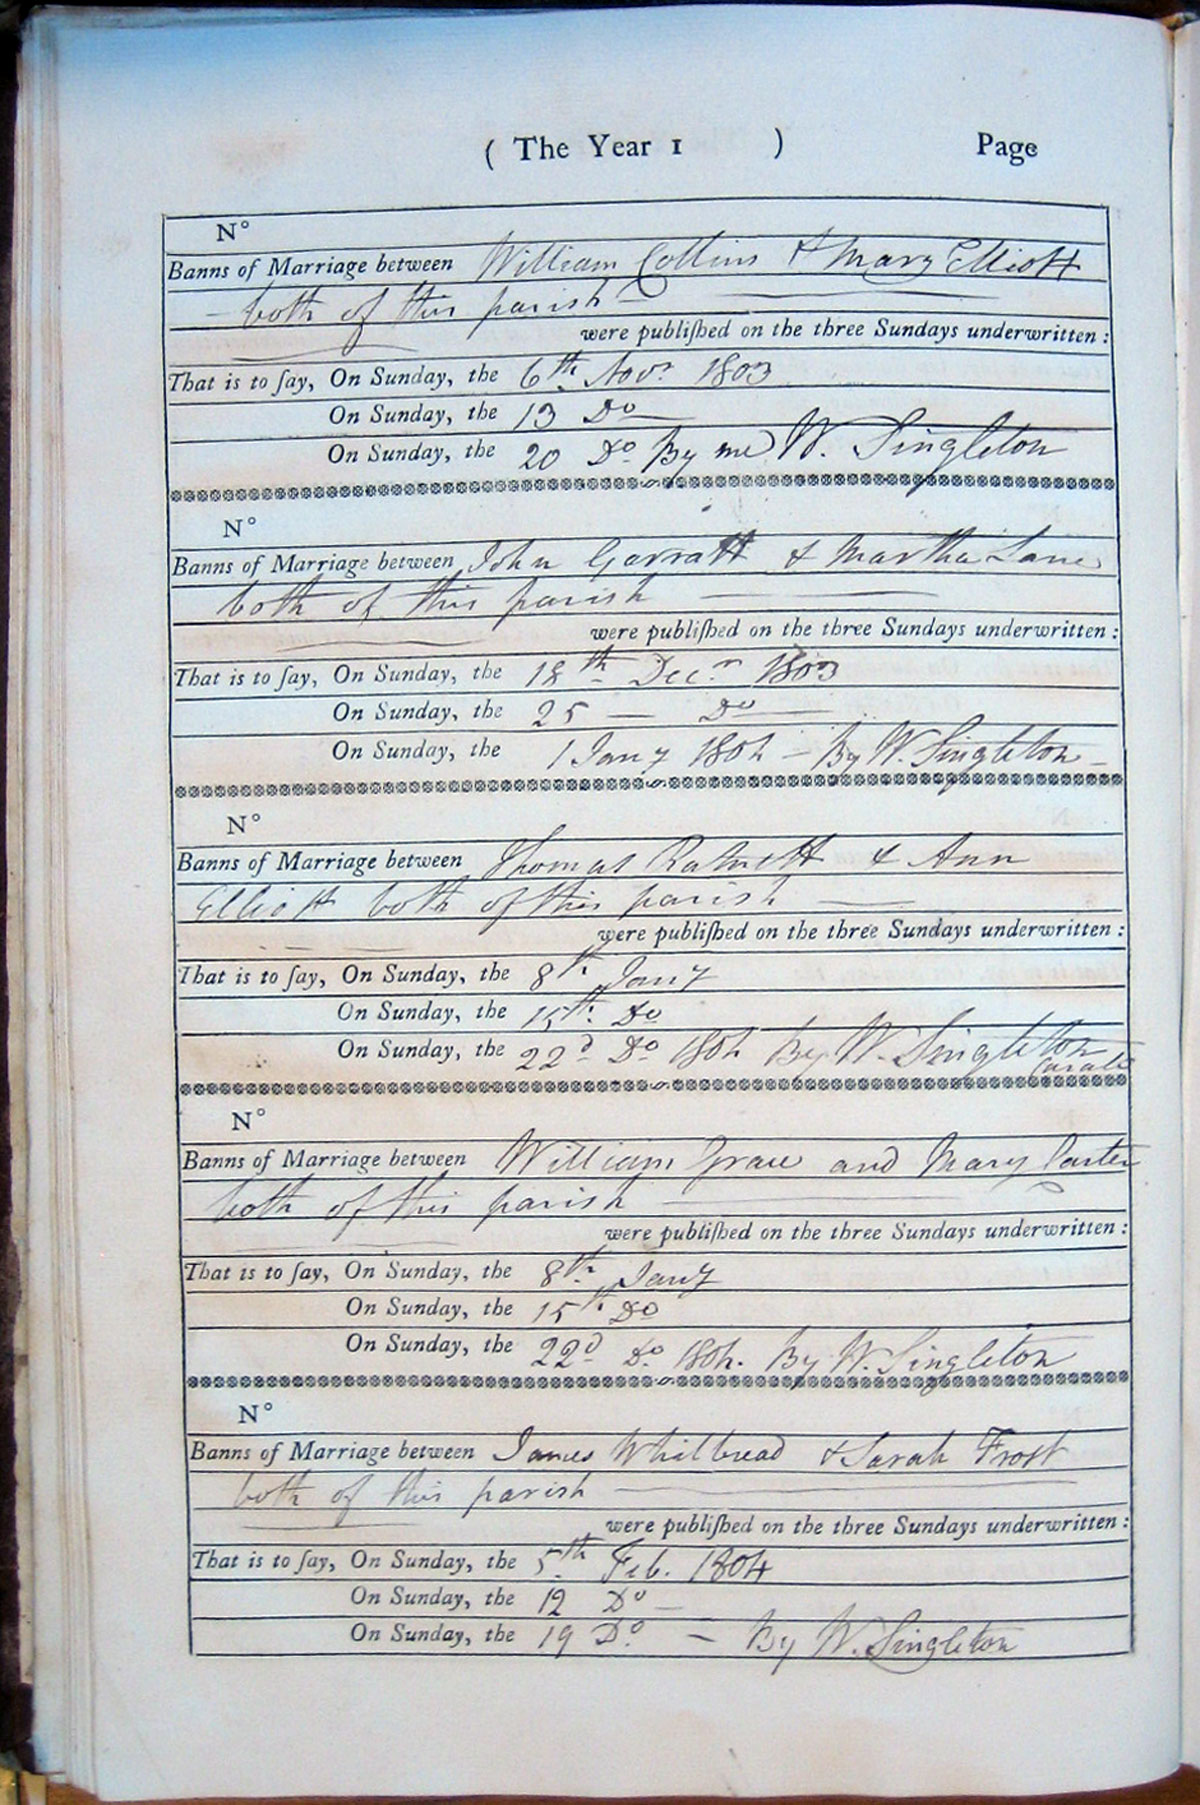 ( The Year 1 ) Page
N°
Banns of Marriage between William Collins & Mary Elliott
both of this parish
were publiſhed on the three Sundays underwritten:
That is to ſay, On Sunday, the 6th Novr 1803
On Sunday, the 13 Do
On Sunday, the 20 Do By me W. Singleton
N°
Banns of Marriage between John Garratt & Martha Lane
both of this parish
were publiſhed on the three Sundays underwritten:
That is to ſay, On Sunday, the 18th Decr 1803
On Sunday, the 25 — Do
On Sunday, the 1 Jany 1804 – By W. Singleton
N°
Banns of Marriage between Thomas & Ann
Elliott both of this parish
were publiſhed on the three Sundays underwritten:
That is to ſay, On Sunday, the 8th Jany
On Sunday, the 15th Do
On Sunday, the 22d Do 1804 By W. Singleton
Curate
N°
Banns of Marriage between William Grace and Mary Carter
both of this parish
were publiſhed on the three Sundays underwritten:
That is to ſay, On Sunday, the 8th Jany
On Sunday, the 15th Do
On Sunday, the 22d Do 1804. By W. Singleton
N°
Banns of Marriage between James Whitbread & Sarah Frost
both of this parish
were publiſhed on the three Sundays underwritten:
That is to ſay, On Sunday, the 5th Feb. 1804
On Sunday, the 12 Do
On Sunday, the 19 Do – By W. Singleton